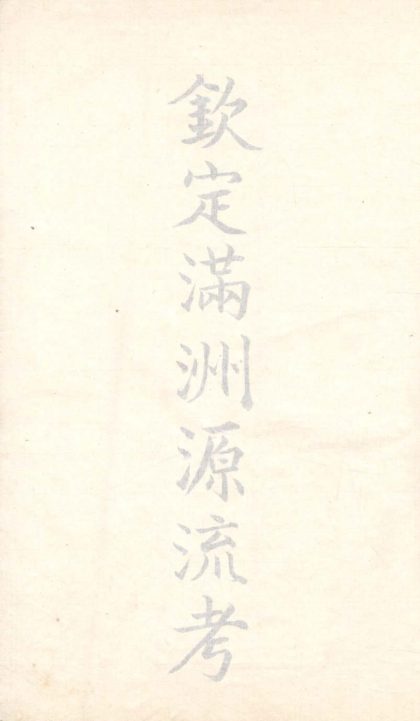 欽定滿洲源流考